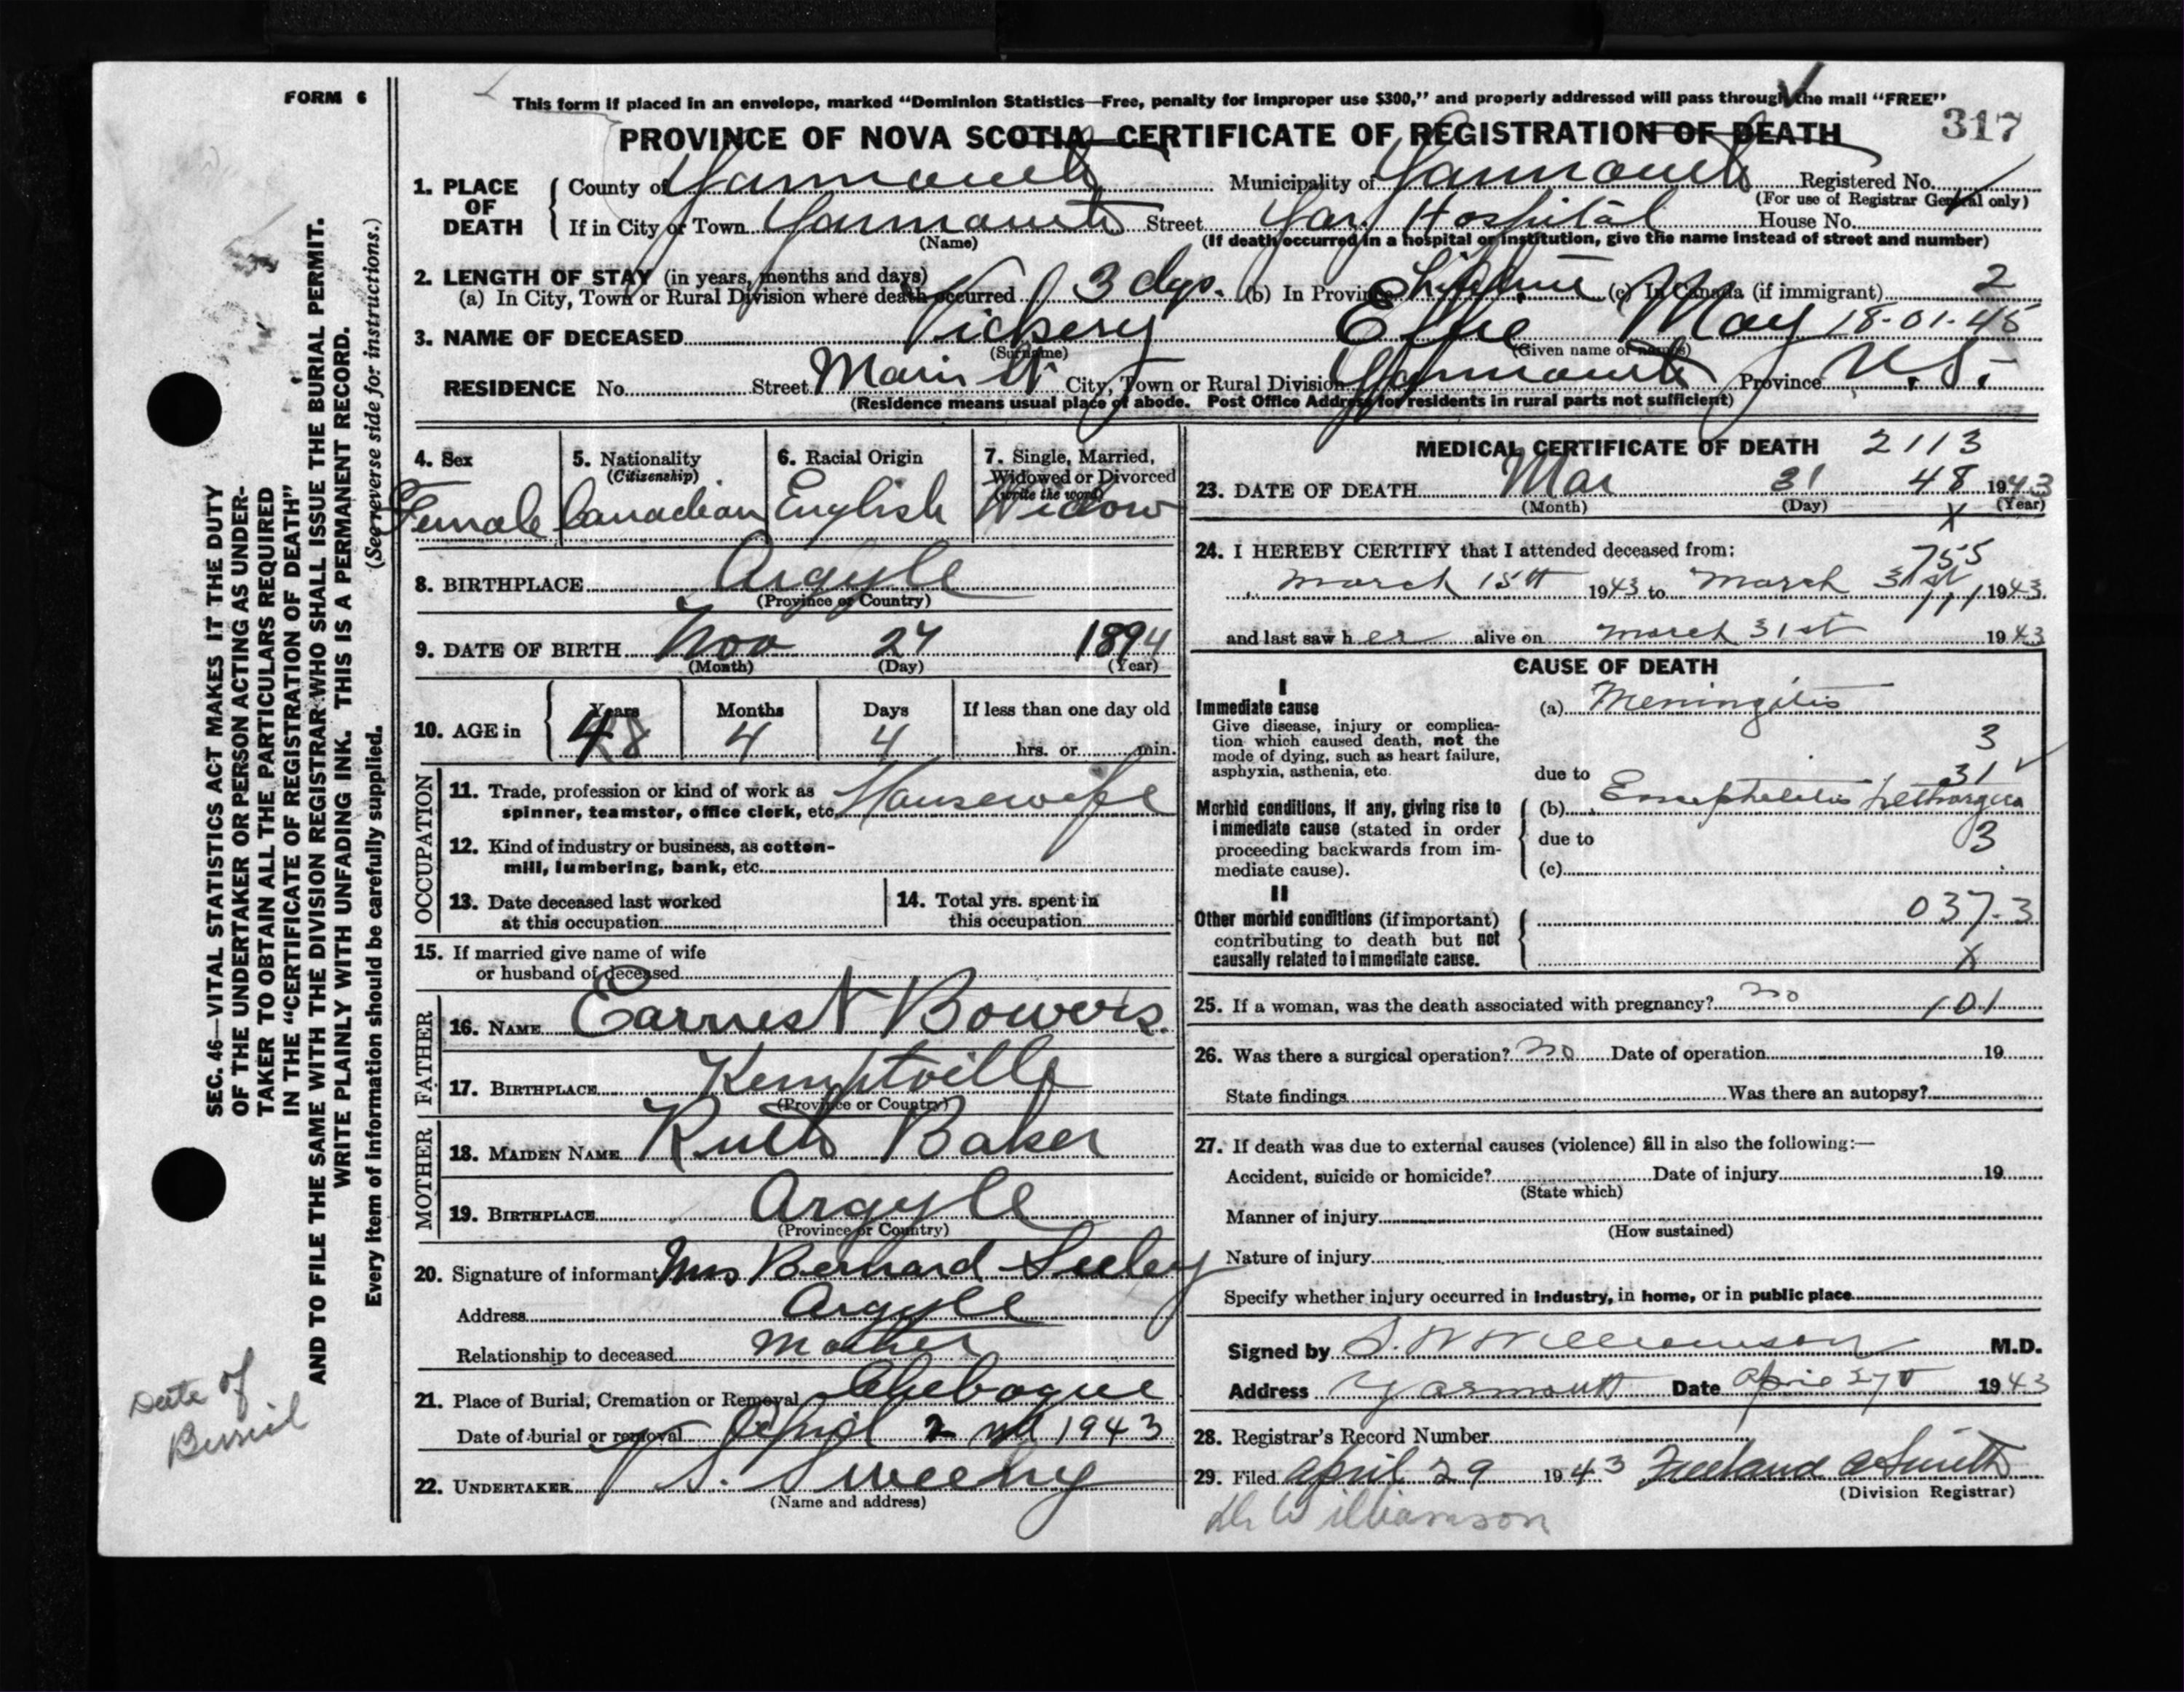 FORM 6
This form if placed in an envelope, marked “Dominion Statistics—Free, penalty for improper use $300,” and properly addressed will pass through the mail “FREE”
PROVINCE OF NOVA SCOTIA—CERTIFICATE OF REGISTRATION OF DEATH 317
1. PLACE OF DEATH
County of Yarmouth Municipality of Yarmouth Registered No.
(For use of Registrar General only)
If in City or Town Yarmouth Street Yar. Hospital House No.
(Name) (If death occurred in a hospital or institution, give the name instead of street and number)
2. LENGTH OF STAY (in years, months and days)
(a) In City, Town or Rural Division where death occurred 3 dys. (b) In Province Lifetime (c) In Canada (if immigrant) 2
3. NAME OF DECEASED Vickery Effie May 18-01-45
(Surname) (Given name or names)
RESIDENCE No. Street Main St City, Town or Rural Division Yarmouth Province N.S.
(Residence means usual place of abode. Post Office Address for residents in rural parts not sufficient)
4. Sex Female
5. Nationality (Citizenship) Canadian
6. Racial Origin English
7. Single, Married, Widowed or Divorced (write the word) Widow
8. BIRTHPLACE Argyle
(Province or Country)
9. DATE OF BIRTH Nov 27 1894
(Month) (Day) (Year)
10. AGE in Years 48 Months 4 Days 4 If less than one day old hrs. or min.
OCCUPATION
11. Trade, profession or kind of work as spinner, teamster, office clerk, etc. Housewife
12. Kind of industry or business, as cotton-mill, lumbering, bank, etc.
13. Date deceased last worked at this occupation
14. Total yrs. spent in this occupation
15. If married give name of wife
or husband of deceased
FATHER
16. NAME Earnest Bowers
17. BIRTHPLACE Kemptville
(Province or Country)
MOTHER
18. MAIDEN NAME Ruth Baker
19. BIRTHPLACE Argyle
(Province or Country)
20. Signature of informant Mrs Bernard Seeley
Address Argyle
Relationship to deceased Mother
21. Place of Burial, Cremation or Removal Chebogue
Date of burial or removal April 2nd 1943
22. UNDERTAKER V. S. Sweeny
(Name and address)
MEDICAL CERTIFICATE OF DEATH 2113
23. DATE OF DEATH Mar 31 48 1943
(Month) (Day) (Year)
X
24. I HEREBY CERTIFY that I attended deceased from:
755
March 15th 1943 to March 31st 1943
111
and last saw her alive on March 31st 1943
CAUSE OF DEATH
I
Immediate cause
Give disease, injury or complication which caused death, not the mode of dying, such as heart failure, asphyxia, asthenia, etc.
(a) Meningitis
3
31
due to
Morbid conditions, if any, giving rise to immediate cause (stated in order proceeding backwards from immediate cause).
(b) Encephelitis Lethargica
due to 3
(c)
II
Other morbid conditions (if important) contributing to death but not causally related to immediate cause.
037.3
X
25. If a woman, was the death associated with pregnancy? no 101
26. Was there a surgical operation? no Date of operation 19
State findings Was there an autopsy?
27. If death was due to external causes (violence) fill in also the following:—
Accident, suicide or homicide? Date of injury 19
(State which)
Manner of injury
(How sustained)
Nature of injury
Specify whether injury occurred in industry, in home, or in public place
Signed by S. W Williamson M.D.
Address Yarmouth Date April 27th 1943
28. Registrar's Record Number
29. Filed April 29 1943 Freeland A Smith
(Division Registrar)
Dr Williamson
SEC. 46—VITAL STATISTICS ACT MAKES IT THE DUTY
OF THE UNDERTAKER OR PERSON ACTING AS UNDER-
TAKER TO OBTAIN ALL THE PARTICULARS REQUIRED
IN THE “CERTIFICATE OF REGISTRATION OF DEATH”
AND TO FILE THE SAME WITH THE DIVISION REGISTRAR WHO SHALL ISSUE THE BURIAL PERMIT.
WRITE PLAINLY WITH UNFADING INK. THIS IS A PERMANENT RECORD.
Every item of information should be carefully supplied. (See reverse side for instructions.)
Date of
Burial